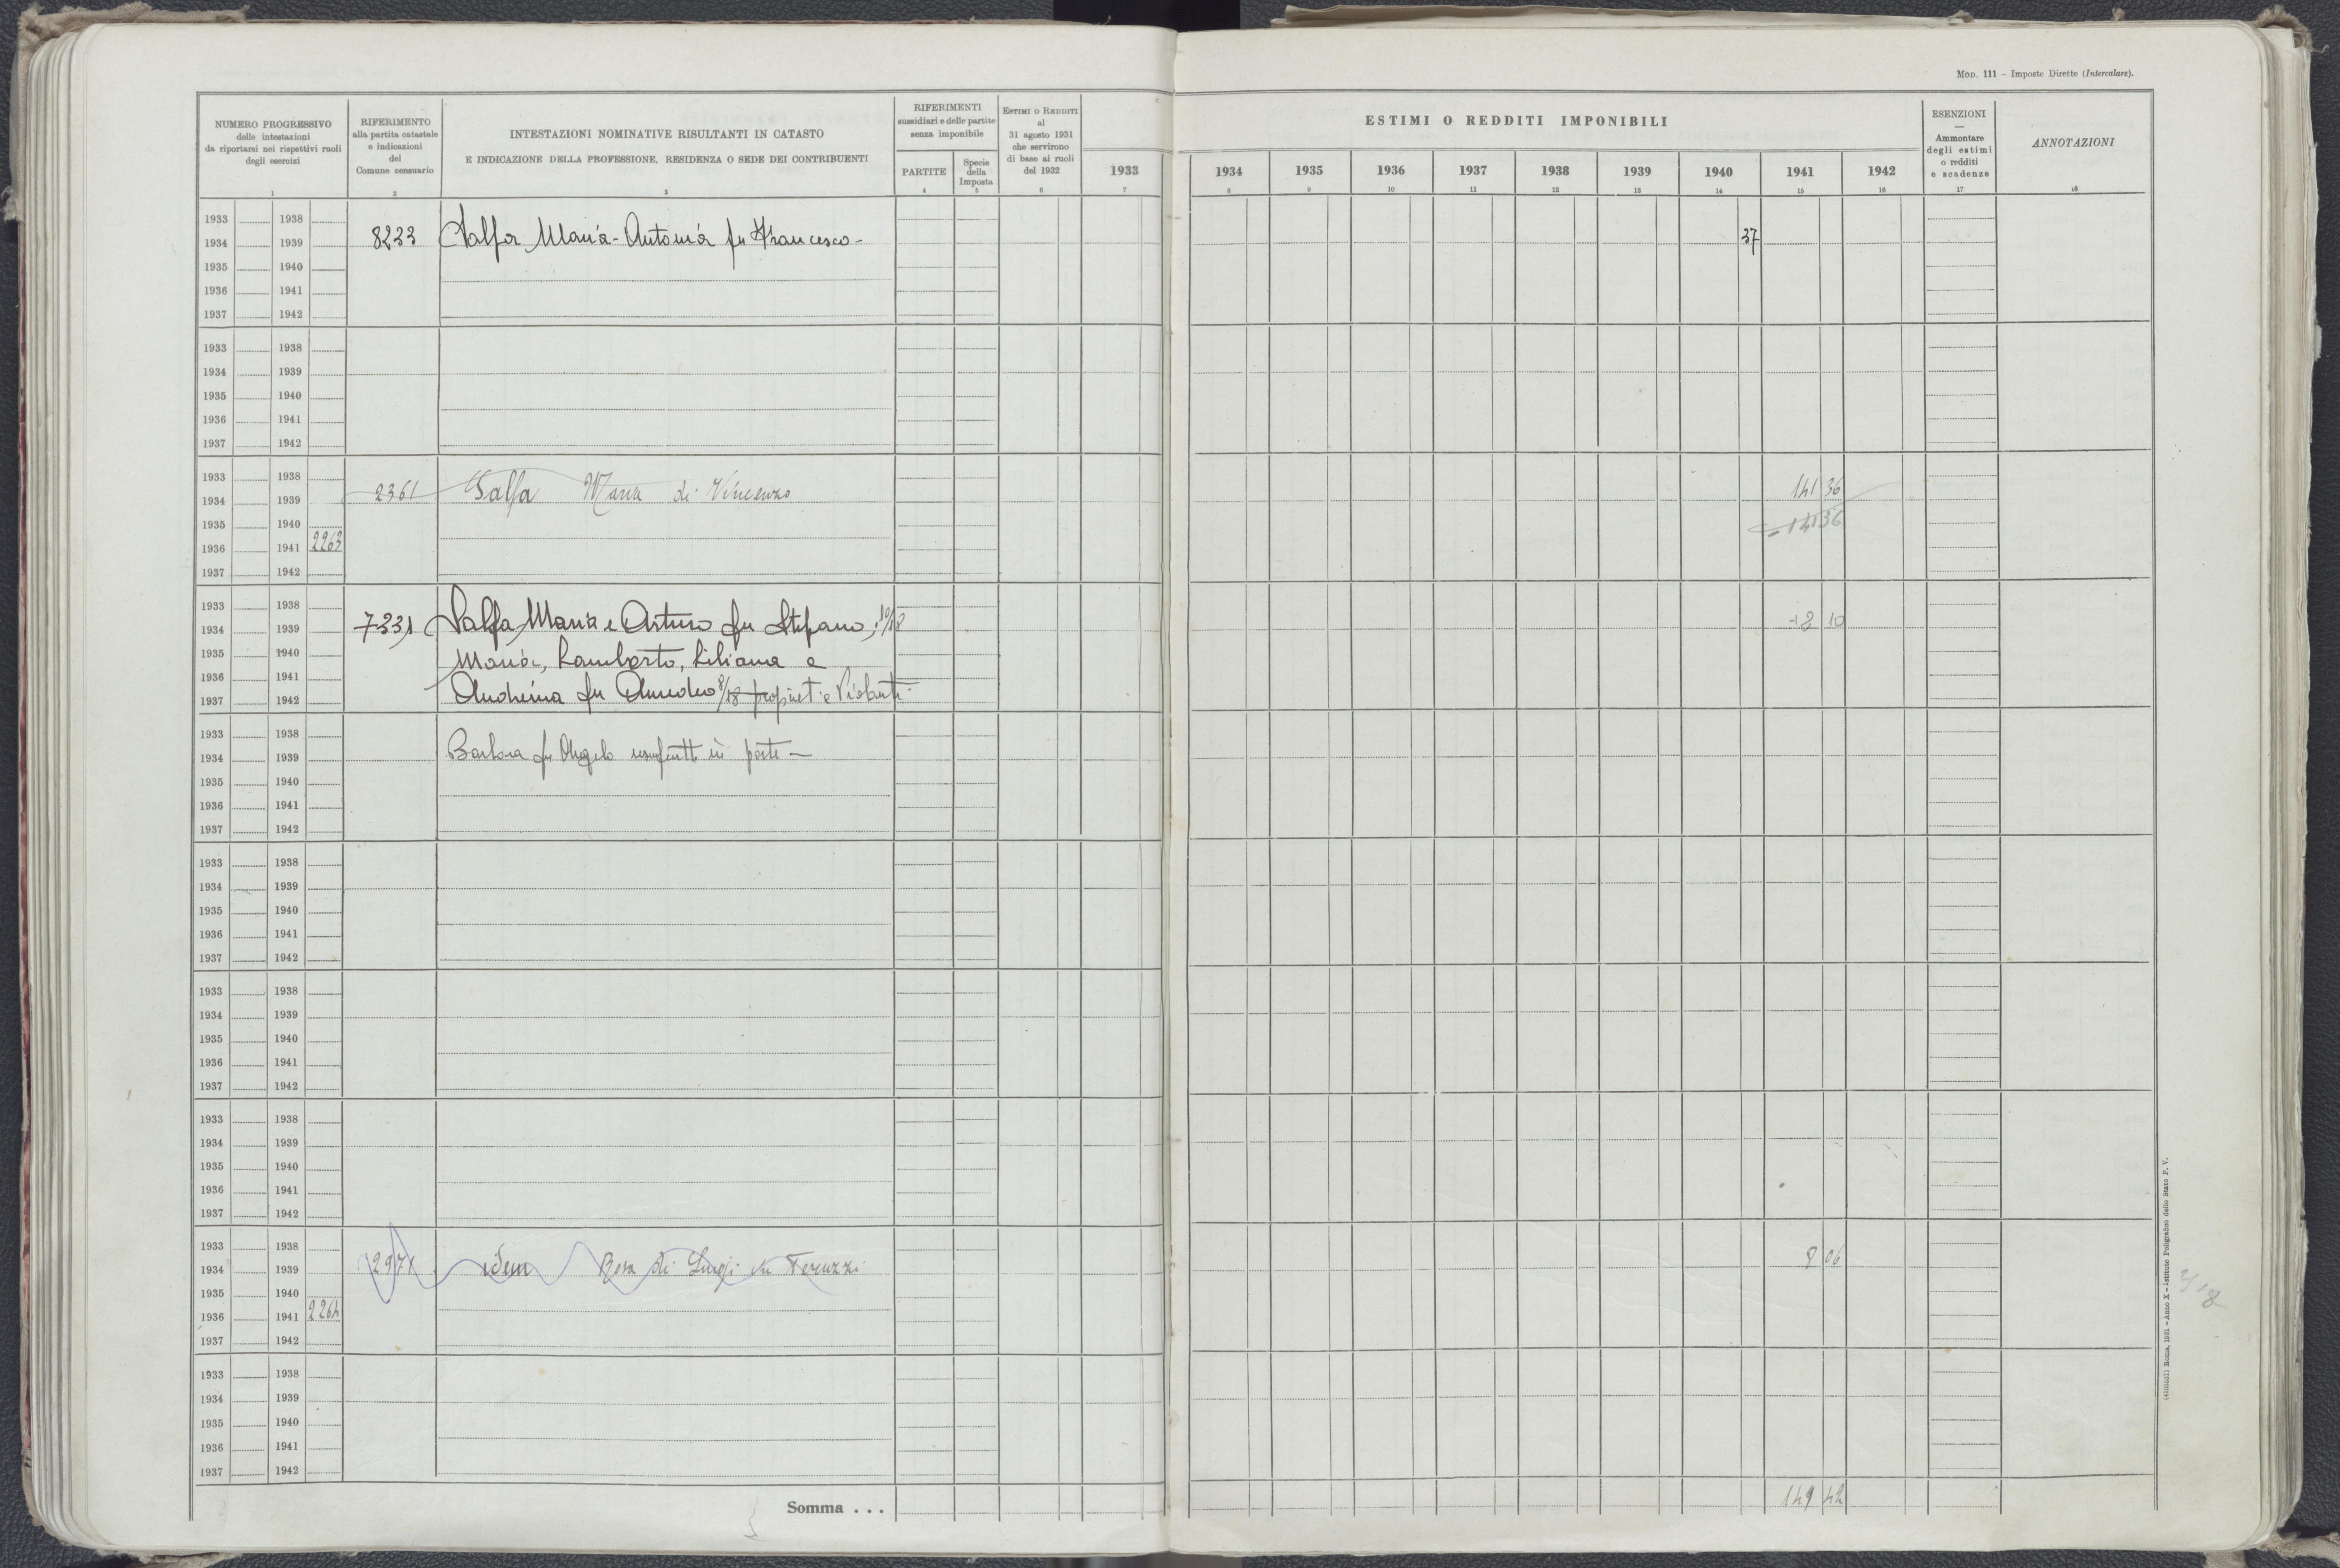 Mod. 111 - Imposte Dirette (Intercalare).
NUMERO PROGRESSIVO
delle intestazioni
da riportarsi nei rispettivi ruoli
degli esercizi
1
RIFERIMENTO
alla partita catastale
e indicazioni
del
Comune censuario
2
INTESTAZIONI NOMINATIVE RISULTANTI IN CATASTO
E INDICAZIONE DELLA PROFESSIONE, RESIDENZA O SEDE DEI CONTRIBUENTI
3
RIFERIMENTI
sussidiari e delle partite
senza imponibile
PARTITE
4
Specie
della
Imposta
5
Estimi o Redditi
al
31 agosto 1931
che servirono
di base ai ruoli
del 1932
6
ESTIMI O REDDITI IMPONIBILI
1933 1934 1935 1936 1937 1938 1939 1940 1941 1942
7 8 9 10 11 12 13 14 15 16
ESENZIONI
—
Ammontare
degli estimi
o redditi
e scadenze
17
ANNOTAZIONI
18
1933 1938
1934 1939 8233 Salfa Maria-Antonia fu Francesco - 37
1935 1940
1936 1941
1937 1942
1933 1938
1934 1939
1935 1940
1936 1941
1937 1942
1933 1938
1934 1939 2361 Salfa Maria di Vincenzo 141 36
1935 1940 - 141 36
1936 1941 2263
1937 1942
1933 1938
1934 1939 7331 Salfa Maria e Arturo fu Stefano; 10/18 8 10
1935 1940 Maria, Lamberto, Liliana e
1936 1941
1937 1942 Andreina fu Amedeo 8/18 propriet e
1933 1938
1934 1939 Barbara fu Angelo usufrutt in parte -
1935 1940
1936 1941
1937 1942
1933 1938
1934 1939
1935 1940
1936 1941
1937 1942
1933 1938
1934 1939
1935 1940
1936 1941
1937 1942
1933 1938
1934 1939
1935 1940
1936 1941
1937 1942
1933 1938
1934 1939 2971 idem Rosa di Luigi in Feruzzi 8 06
1935 1940
1936 1941 2264
1937 1942
1933 1938
1934 1939
1935 1940
1936 1941
1937 1942
Somma . . . 149 42
Roma, 1931 - Anno X - Istituto Poligrafico dello Stato P. V.